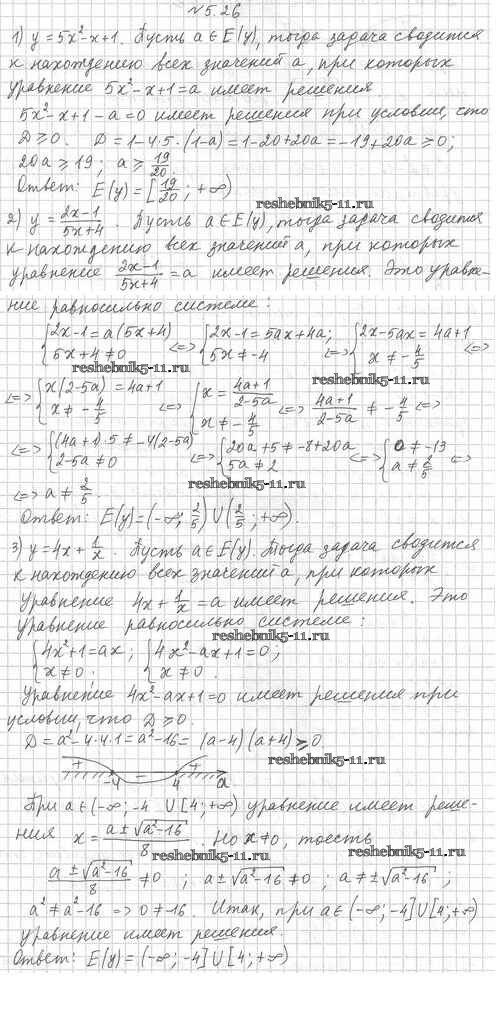 №5.26
1) y = 5x²-x+1. Пусть a∈E(y), тогда задача сводится
к нахождению всех значений a, при которых
уравнение 5x²-x+1=a имеет решения.
5x²-x+1-a=0 имеет решения при условии, что
D≥0. D=1-4·5·(1-a)=1-20+20a=-19+20a≥0;
20a≥19; a≥19/20
Ответ: E(y)=[19/20; +∞)
reshebnik5-11.ru
2) y = (2x-1)/(5x+4). Пусть a∈E(y), тогда задача сводится
к нахождению всех значений a, при которых
уравнение (2x-1)/(5x+4) = a имеет решения. Это уравне-
ние равносильно системе:
{2x-1=a(5x+4) 5x+4≠0 <=> {2x-1=5ax+4a; 5x≠-4 <=> {2x-5ax=4a+1 x≠-4/5 <=>
reshebnik5-11.ru reshebnik5-11.ru
<=> {x(2-5a)=4a+1 x≠-4/5 <=> {x=(4a+1)/(2-5a) x≠-4/5 <=> (4a+1)/(2-5a) ≠ -4/5 <=>
<=> {(4a+1)·5≠-4(2-5a) 2-5a≠0 <=> {20a+5≠-8+20a 5a≠2 <=> {0≠-13 a≠2/5 <=>
<=> a≠2/5. reshebnik5-11.ru
Ответ: E(y)=(-∞; 2/5)∪(2/5; +∞).
3) y=4x+1/x. Пусть a∈E(y). Тогда задача сводится
к нахождению всех значений a, при которых
уравнение 4x+1/x=a имеет решения. Это
уравнение равносильно системе:
reshebnik5-11.ru
{4x²+1=ax; x≠0; {4x²-ax+1=0; x≠0.
Уравнение 4x²-ax+1=0 имеет решения при
условии, что D≥0.
D=a²-4·4·1=a²-16=(a-4)(a+4)≥0
reshebnik5-11.ru
+ -4 − 4 + a
При a∈(-∞; -4 ∪[4; +∞) уравнение имеет реше-
ния x=(a±√(a²-16))/8. Но x≠0, тоесть
reshebnik5-11.ru reshebnik5-11.ru
(a±√(a²-16))/8 ≠0; a±√(a²-16)≠0; a≠±√(a²-16);
a²≠a²-16 => 0≠-16. Итак, при a∈(-∞; -4]∪[4; +∞)
уравнение имеет решения.
reshebnik5-11.ru
Ответ: E(y)=(-∞; -4]∪[4; +∞)